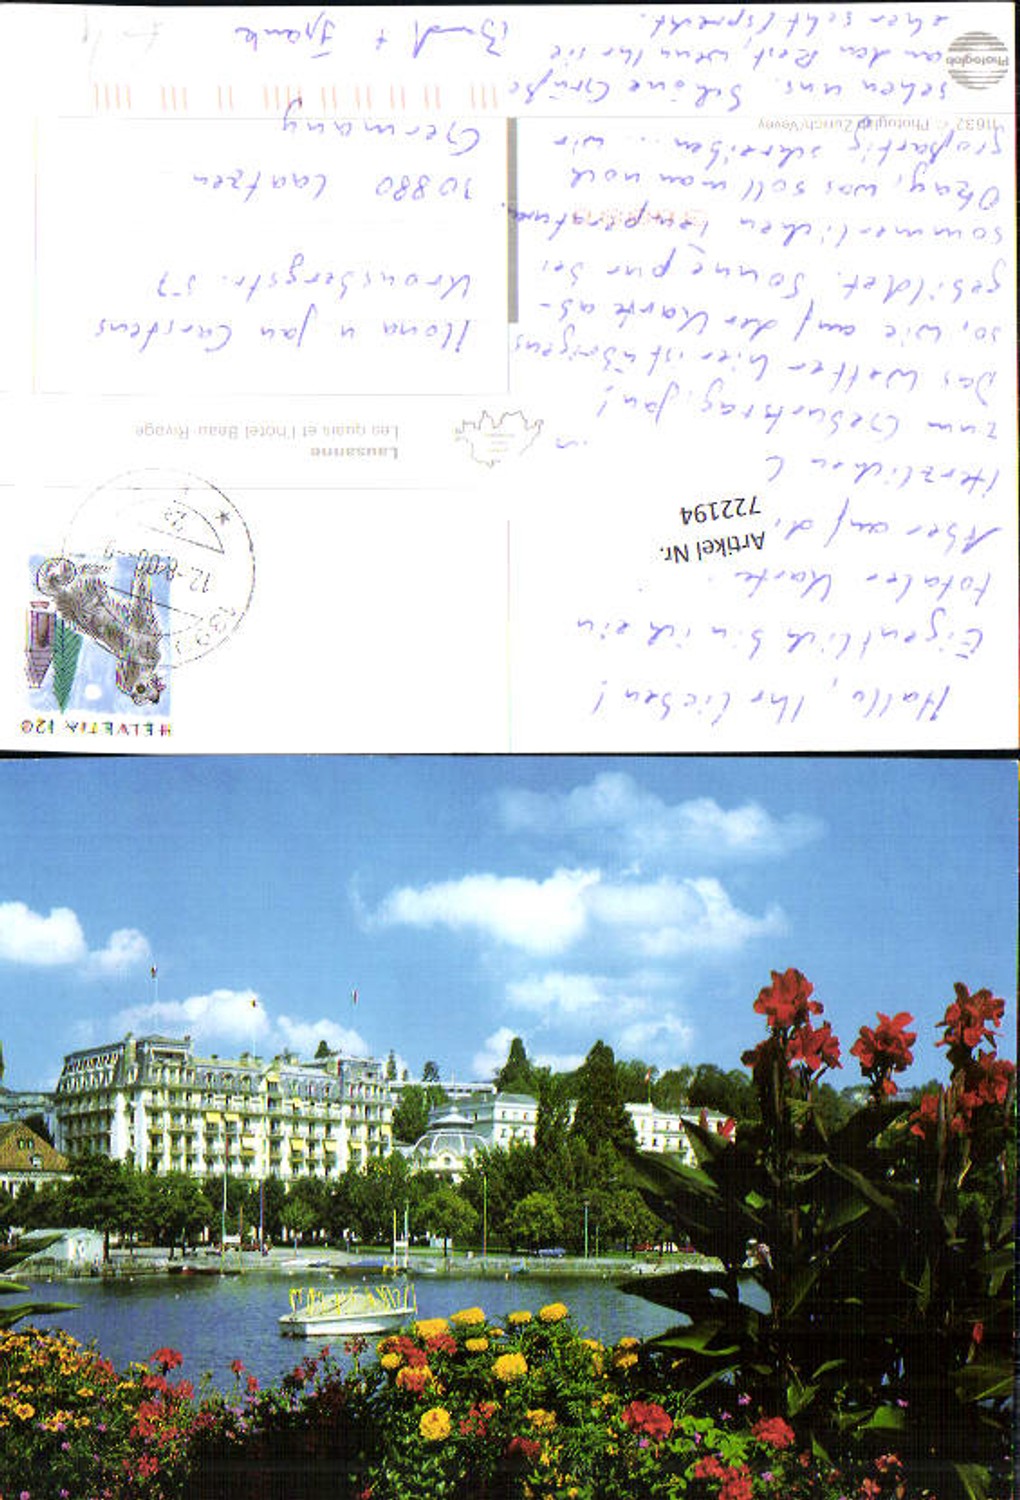 Hallo, Ihr Lieben!
Eigentlich bin ich ein
totaler Karte
Aber auf di
Herzlichen G
zum Geburtstag, Jan!
Das Wetter hier ist übrigens
so, wie auf der Karte ab-
gebildet. Sonne pur bei
sommerlichen Temperaturen.
Okay, was soll man noch
großartig schreiben... wir
sehen uns. Schöne Grüße
an den Rest, wenn Ihr sie
eher seht / sprecht.
+ Frank
Artikel Nr.
722194
HELVETIA 120
12-8.00-9
Lausanne
Les quais et l'hôtel Beau-Rivage
Ilona u. Jan Carstens
Kronsbergstr. 57
30880 Laatzen
Germany
11632 © Photoglob Zürich/Vevey
Photoglob